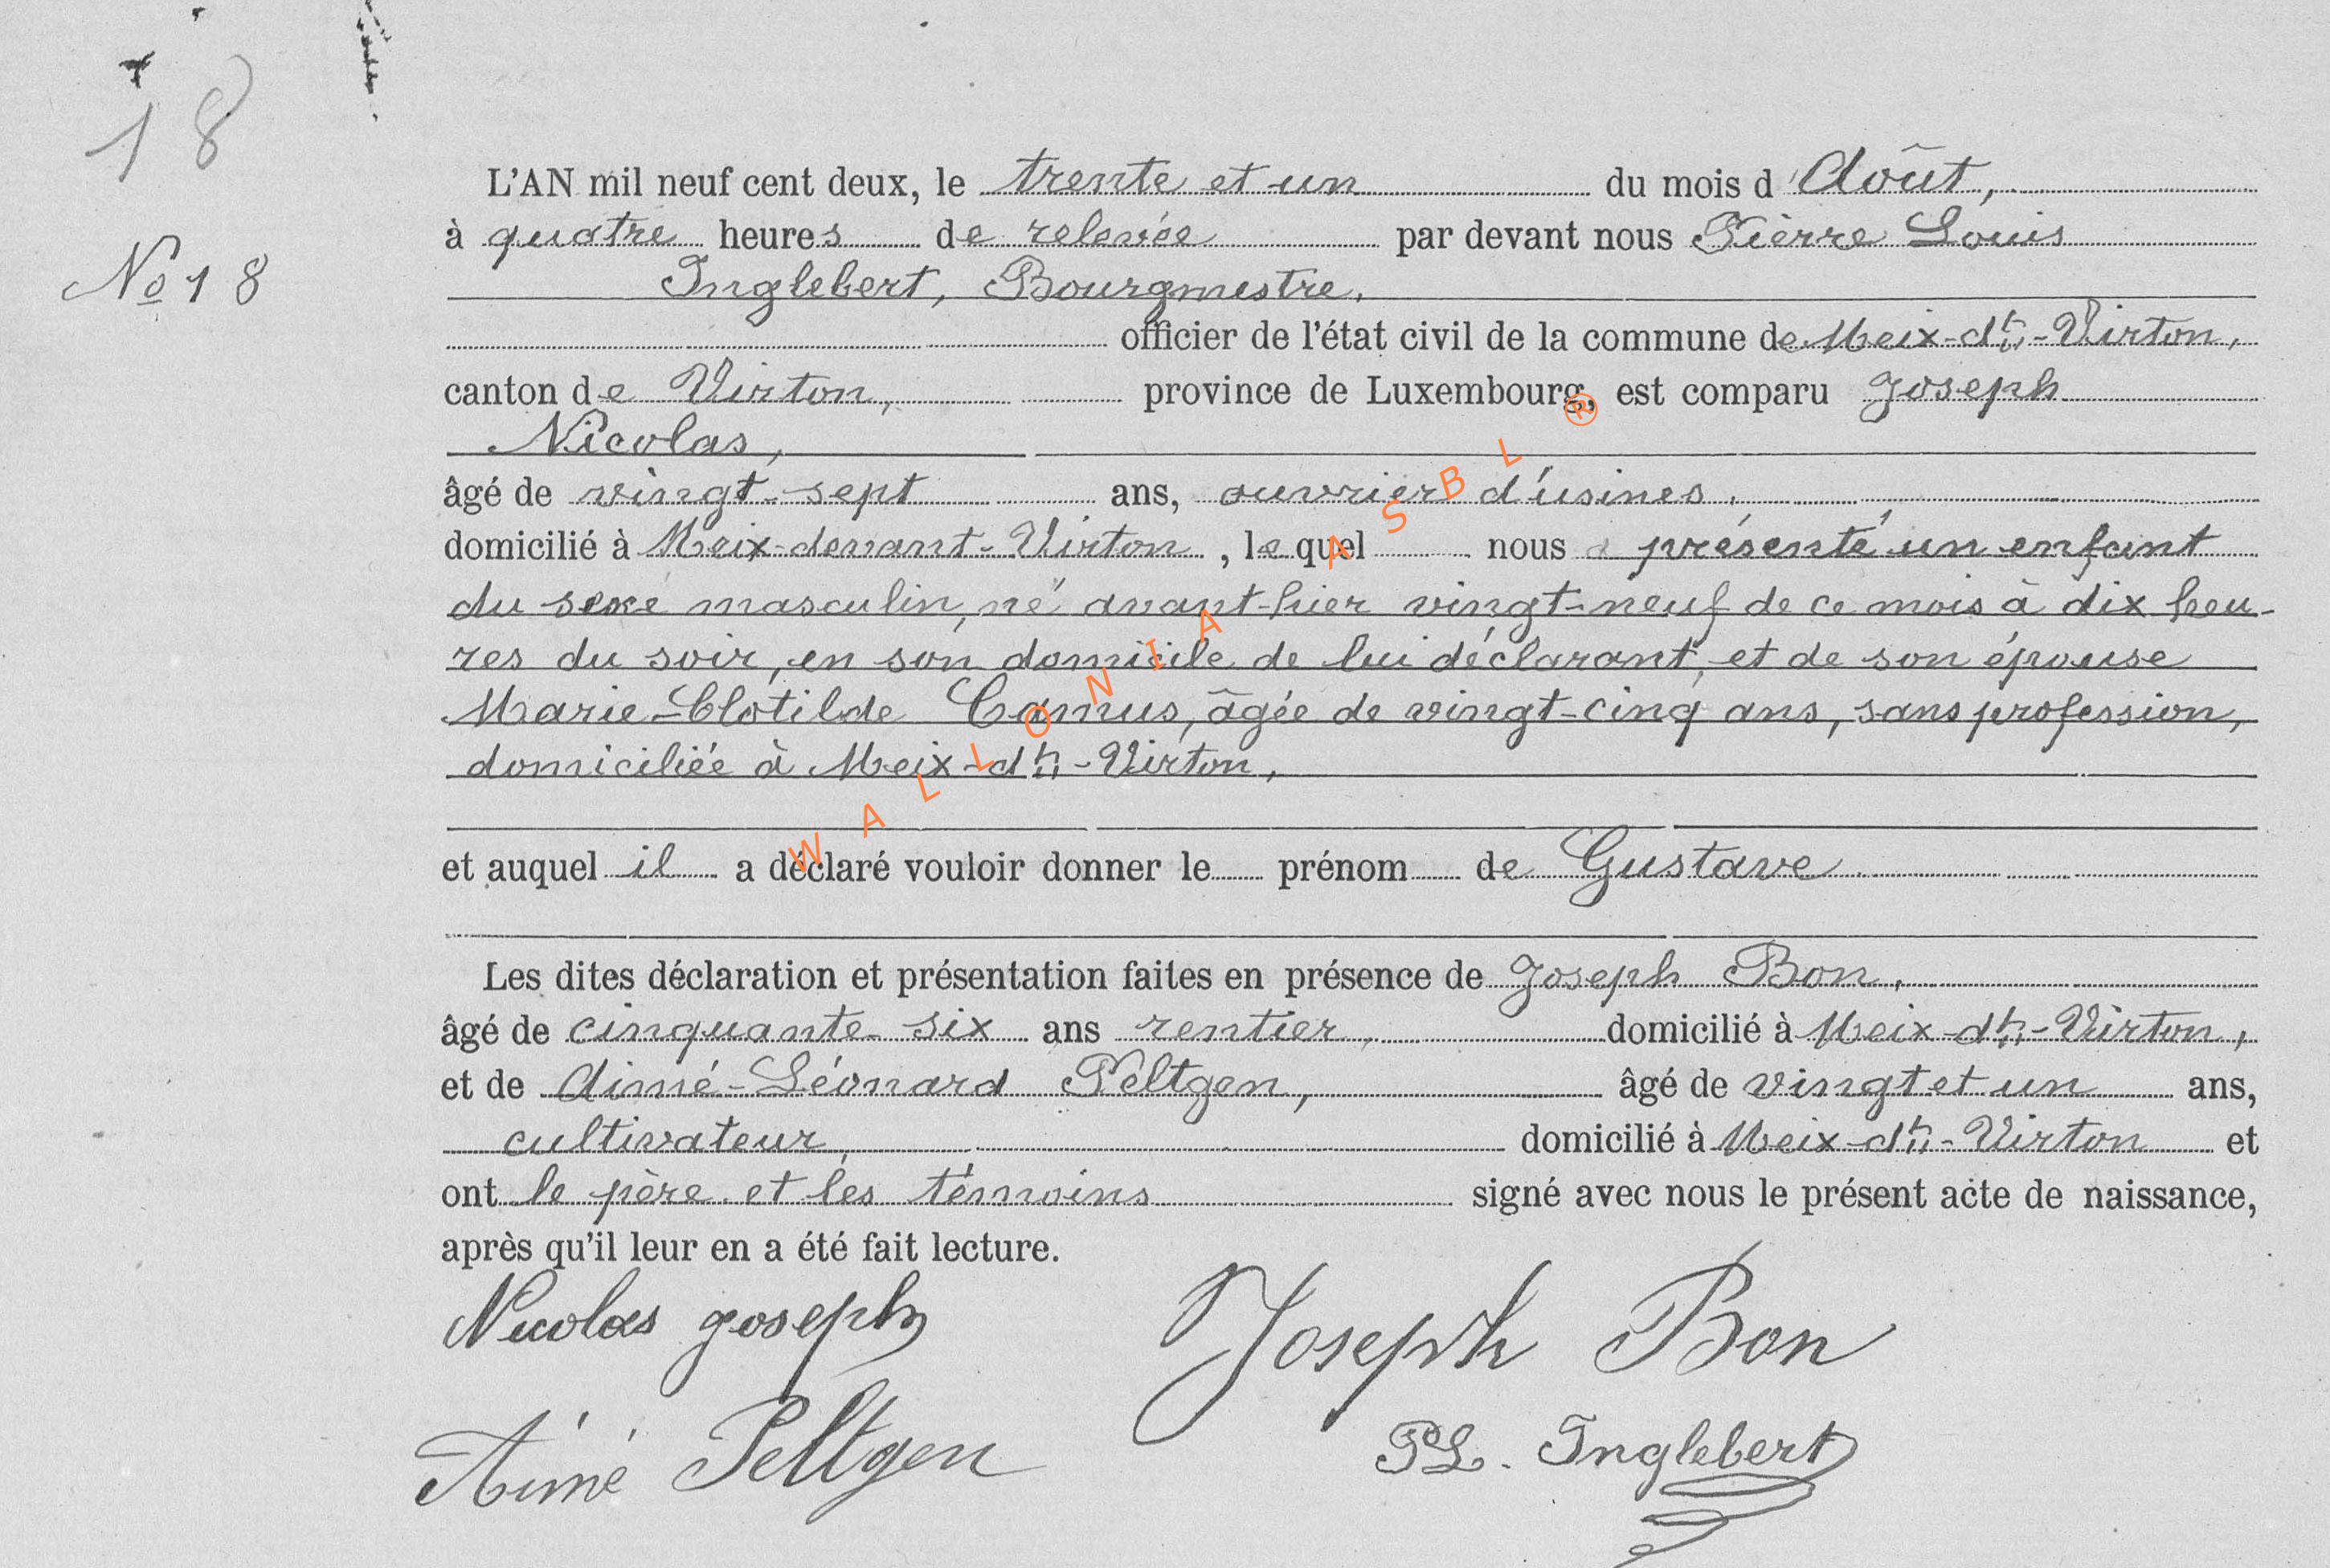 18
L'AN mil neuf cent deux, le trente et un du mois d'Août,
à quatre heures de relevée par devant nous Pièrre Louis
No 18
Inglebert, Bourgmestre,
officier de l'état civil de la commune de Meix-dt-Virton,
canton de Virton, province de Luxembourg, est comparu Joseph
Nicolas,
âgé de vingt-sept ans, ouvrier d'usines,
domicilié à Meix-devant-Virton, lequel nous a présenté un enfant
du sexe masculin, né avant-hier vingt-neuf de ce mois à dix heu-
res du soir, en son domicile de lui déclarant, et de son épouse
Marie-Clotilde Camus, âgée de vingt-cinq ans, sans profession,
domiciliée à Meix-dt-Virton,
et auquel il a déclaré vouloir donner le prénom de Gustave
Les dites déclaration et présentation faites en présence de Joseph Bon,
âgé de cinquante-six ans rentier, domicilié à Meix-dt-Virton,
et de Aimé-Léonard Peltgen, âgé de vingt et un ans,
cultivateur, domicilié à Meix-dt-Virton et
ont le père et les témoins signé avec nous le présent acte de naissance,
après qu'il leur en a été fait lecture.
Nicolas joseph
Joseph Bon
Aimé Peltgen
PL. Inglebert
WALLONIA ASBL ®